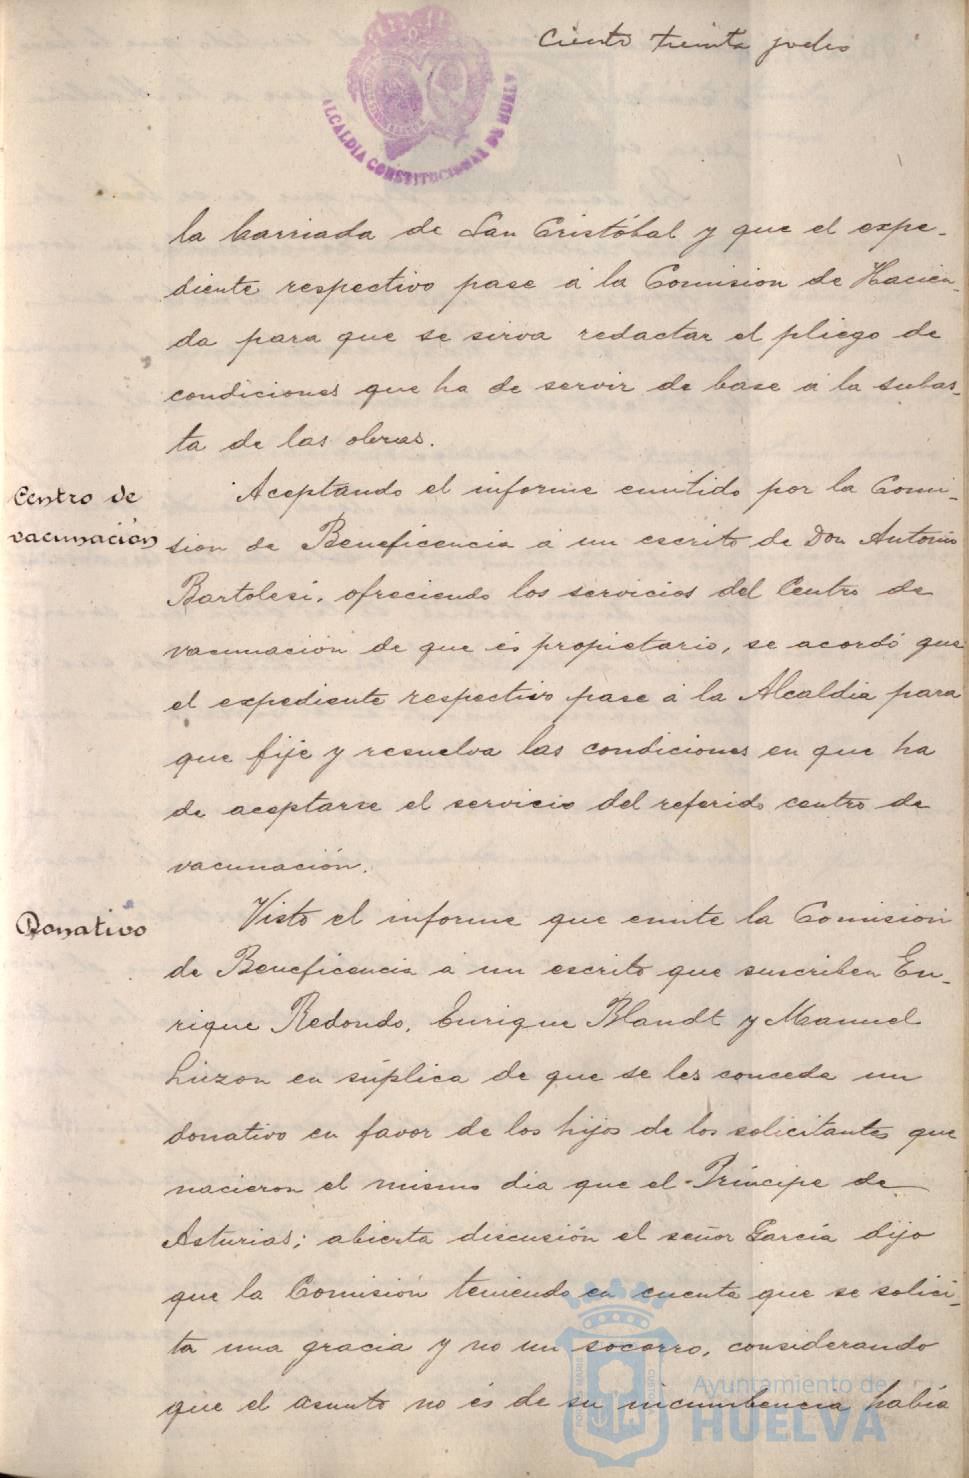 Ciento treinta y ocho
ALCALDIA CONSTITUCIONAL DE HUELVA
la barriada de San Cristóbal y que el expe-
diente respectivo pase á la Comision de Hacien-
da para que se sirva redactar el pliego de
condiciones que ha de servir de base á la subas-
ta de las obras.
Centro de
vacunación
Aceptando el informe emitido por la Comi-
sion de Beneficencia a un escrito de Don Antonio
Bartolesi, ofreciendo los servicios del Centro de
vacunación de que és propietario, se acordó que
el expediente respectivo pase á la Alcaldia para
que fije y resuelva las condiciones en que ha
de aceptarse el servicio del referido centro de
vacunación.
Donativo
Visto el informe que emite la Comisión
de Beneficencia á un escrito que suscriben En-
rique Redondo, Enrique Blandt y Manuel
Liuzon en súplica de que se les conceda un
donativo en favor de los hijos de los solicitantes que
nacieron el mismo dia que el Príncipe de
Asturias; abierta discusión el señor García dijo
que la Comisión teniendo en cuenta que se solici-
ta una gracia y no un socorro, considerando
que el asunto no és de su incumbencia habia
Ayuntamiento de
HUELVA